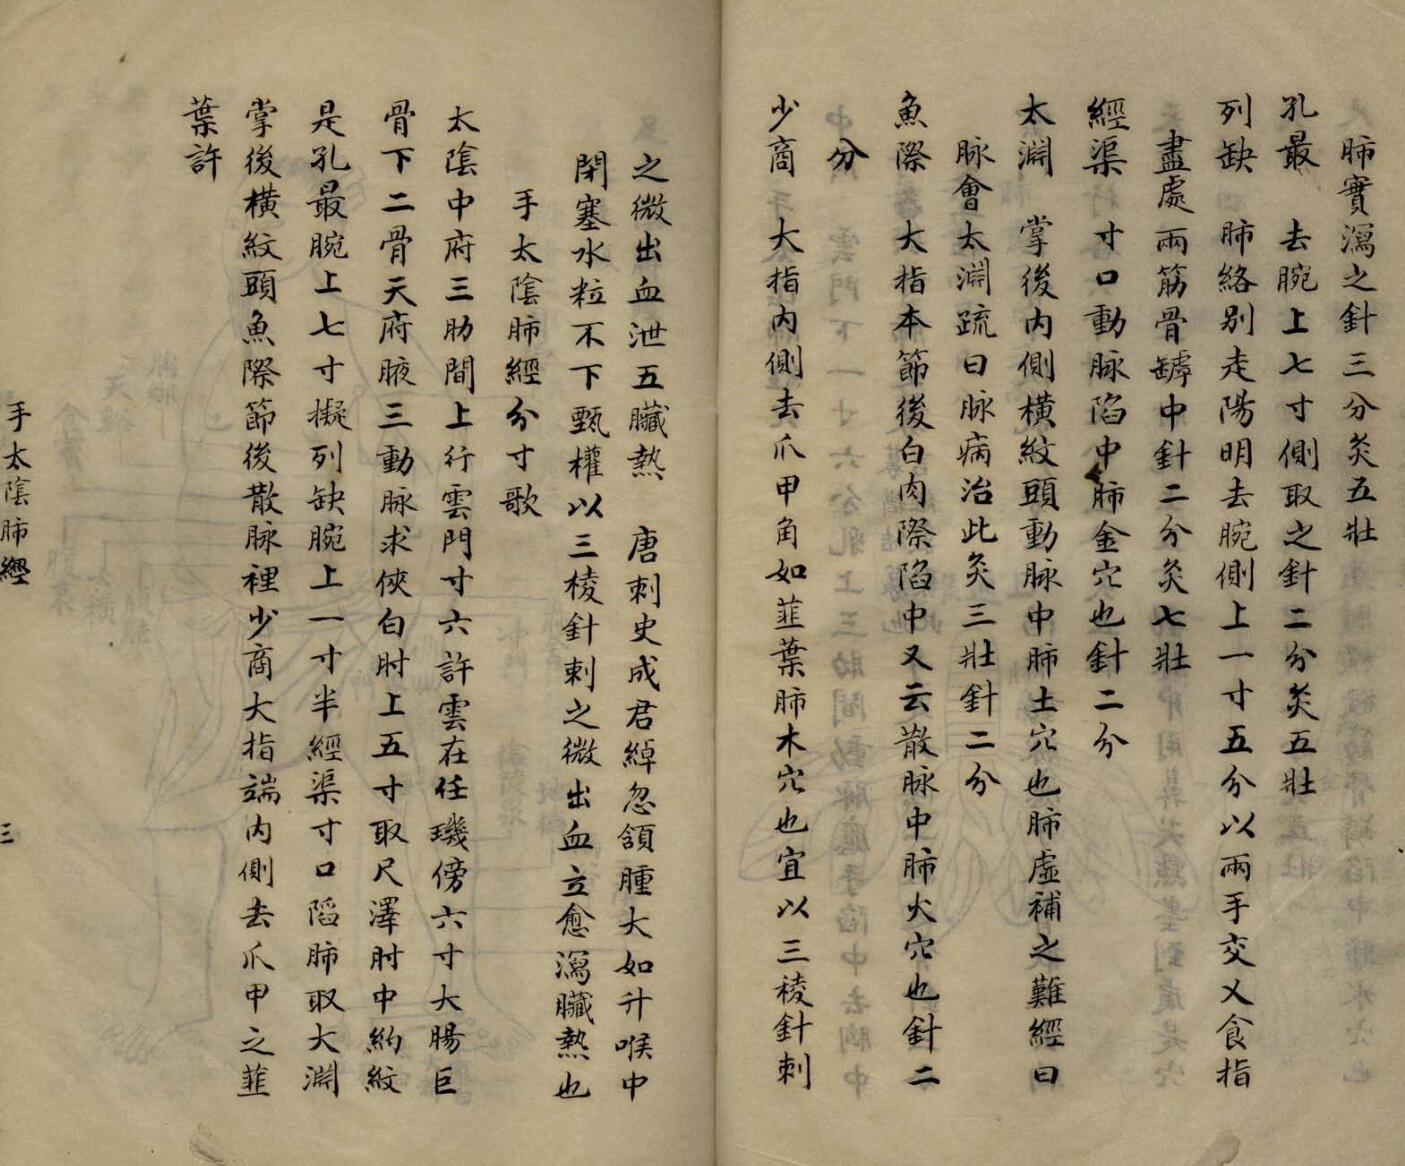 肺實瀉之針三分灸五壯
孔最　去腕上七寸側取之針二分灸五壯
列缺　肺絡別走陽明去腕側上一寸五分以兩手交叉食指
盡處兩筋骨罅中針二分灸七壯
經渠　寸口動脉陷中肺金穴也針二分
太淵　掌後內側橫紋頭動脉中肺土穴也肺虛補之難經曰
脉會太淵疏曰脉病治此灸三壯針二分
魚際　大指本節後白肉際陷中又云散脉中肺火穴也針二
分
少商　大指內側去爪甲角如韮葉肺木穴也宜以三稜針刺
之微出血泄五臟熱　唐刺史成君綽忽頷腫大如升喉中
閉塞水粒不下甄權以三棱針刺之微出血立愈瀉臟熱也
手太陰肺經分寸歌
太陰中府三肋間上行雲門寸六許雲在任璣傍六寸大腸巨
骨下二骨天府腋三動脉求俠白肘上五寸取尺澤肘中約紋
是孔最腕上七寸擬列缺腕上一寸半經渠寸口陷肺取大淵
掌後橫紋頭魚際節後散脉裡少商大指端內側去爪甲之韮
葉許
手太陰肺經　三